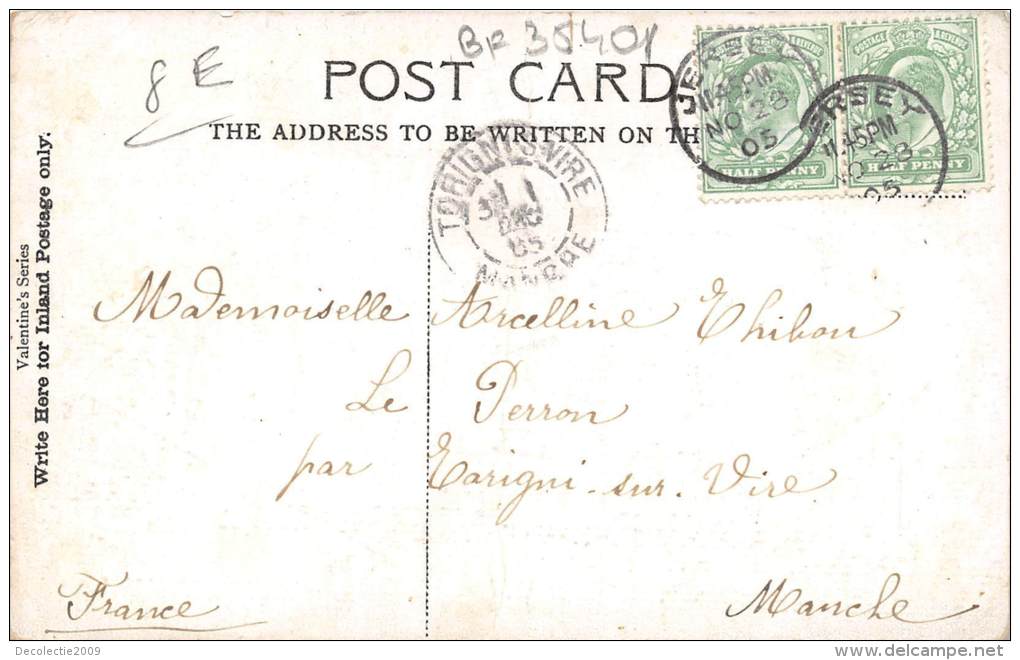 BR 35401
8 E
POST CARD
THE ADDRESS TO BE WRITTEN ON TH
JERSEY
11.45PM
NO 28
05
HALF PENNY
POSTAGE & REVENUE
ERSEY
11.45PM
NO 28
05
HALF PENNY
TORIGNI-S-VIRE
DEC
05
MANCHE
Valentine's Series
Write Here for Inland Postage only.
Mademoiselle Arcelline Thibou
Le Perron
par Torigni-sur-Vire
France Manche
Decolectie2009
delcampe.net